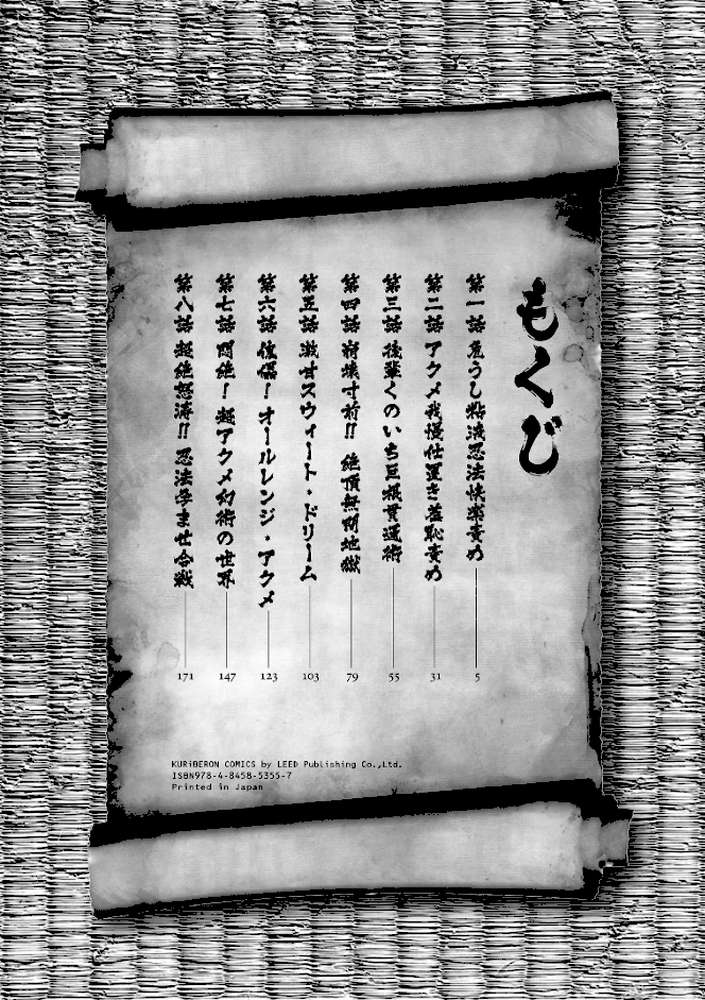 もくじ
第一話 危うし粘液忍法快楽責め 5
第二話 アクメ我慢仕置き羞恥責め 31
第三話 後輩くのいち巨根貫通術 55
第四話 崩壊寸前!! 絶頂無間地獄 79
第五話 戦甘スウィート・ドリーム 103
第六話 復讐！オールレンジ・アクメ 123
第七話 悶絶！超アクメ幻術の世界 147
第八話 超絶怒涛!! 忍法孕ませ合戦 171
KURiBERON COMICS by LEED Publishing Co.,Ltd.
ISBN978-4-8458-5355-7
Printed in Japan